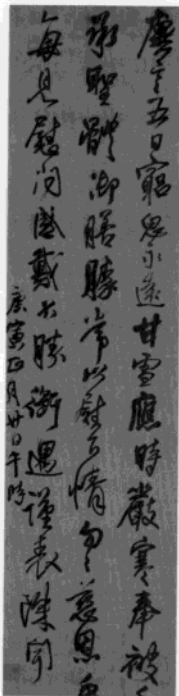 慶等五日窮思永遠甘雪應時嚴寒奉被
承聖體御膳勝常以慰下情勿慈恩
每見慰問感戴不勝銜遇謹表陳聞
庚寅正月廿日午時